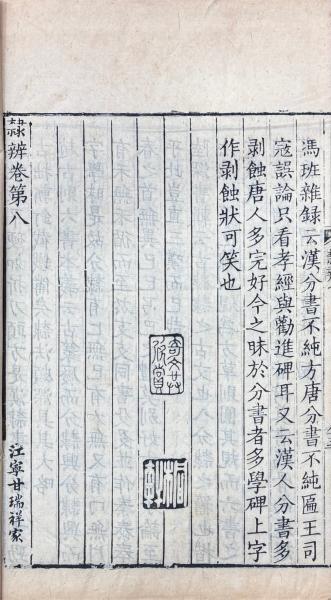 馮班雜録云漢分書不純方唐分書不純匾王司
寇誤論只看孝經與勸進碑耳又云漢人分書多
剥蝕唐人多完好今之昧於分書者多學碑上字
作剥蝕狀可笑也
隷辨卷第八
江寧甘瑞祥家